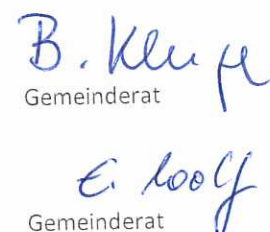 B. Kluge
Gemeinderat
E. Wolf
Gemeinderat